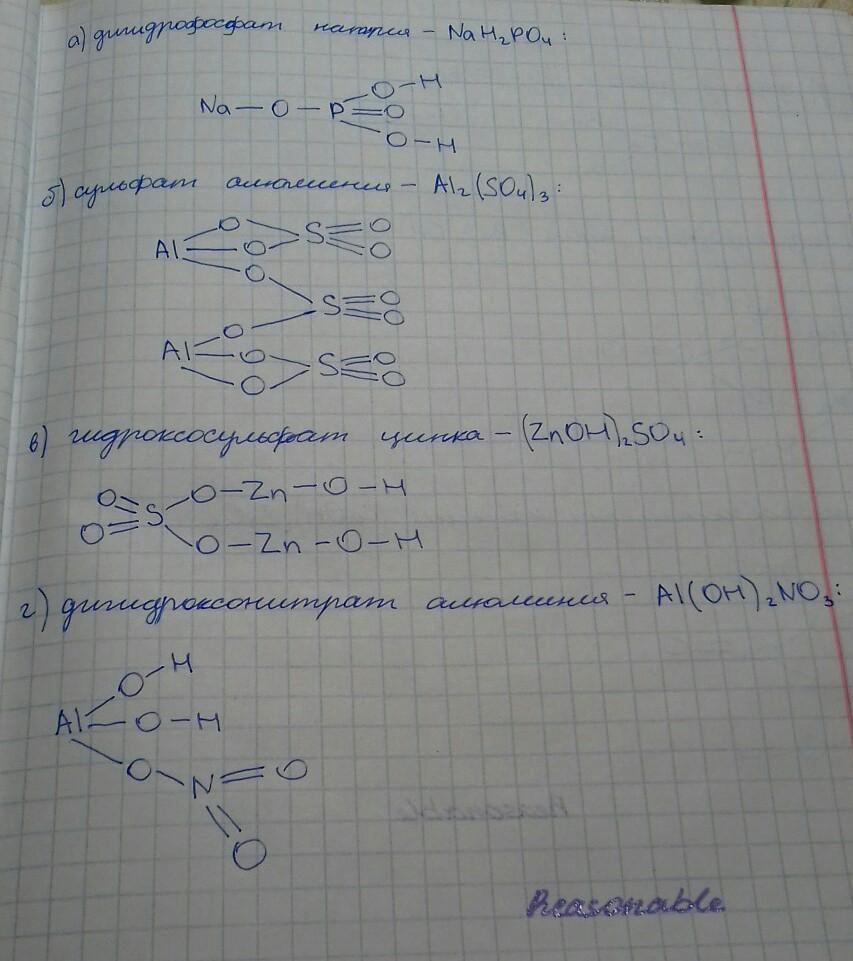 а) дигидрофосфат натрия – NaH₂PO₄:
O–H
Na–O–P=O
O–H
б) сульфат алюминия – Al₂(SO₄)₃:
O S=O
Al–O =O
O
S=O
O =O
Al–O S=O
O =O
в) гидроксосульфат цинка – (ZnOH)₂SO₄:
O= O–Zn–O–H
O=S
O–Zn–O–H
г) дигидроксонитрат алюминия – Al(OH)₂NO₃:
O–H
Al–O–H
O–N=O
O
Reasonable